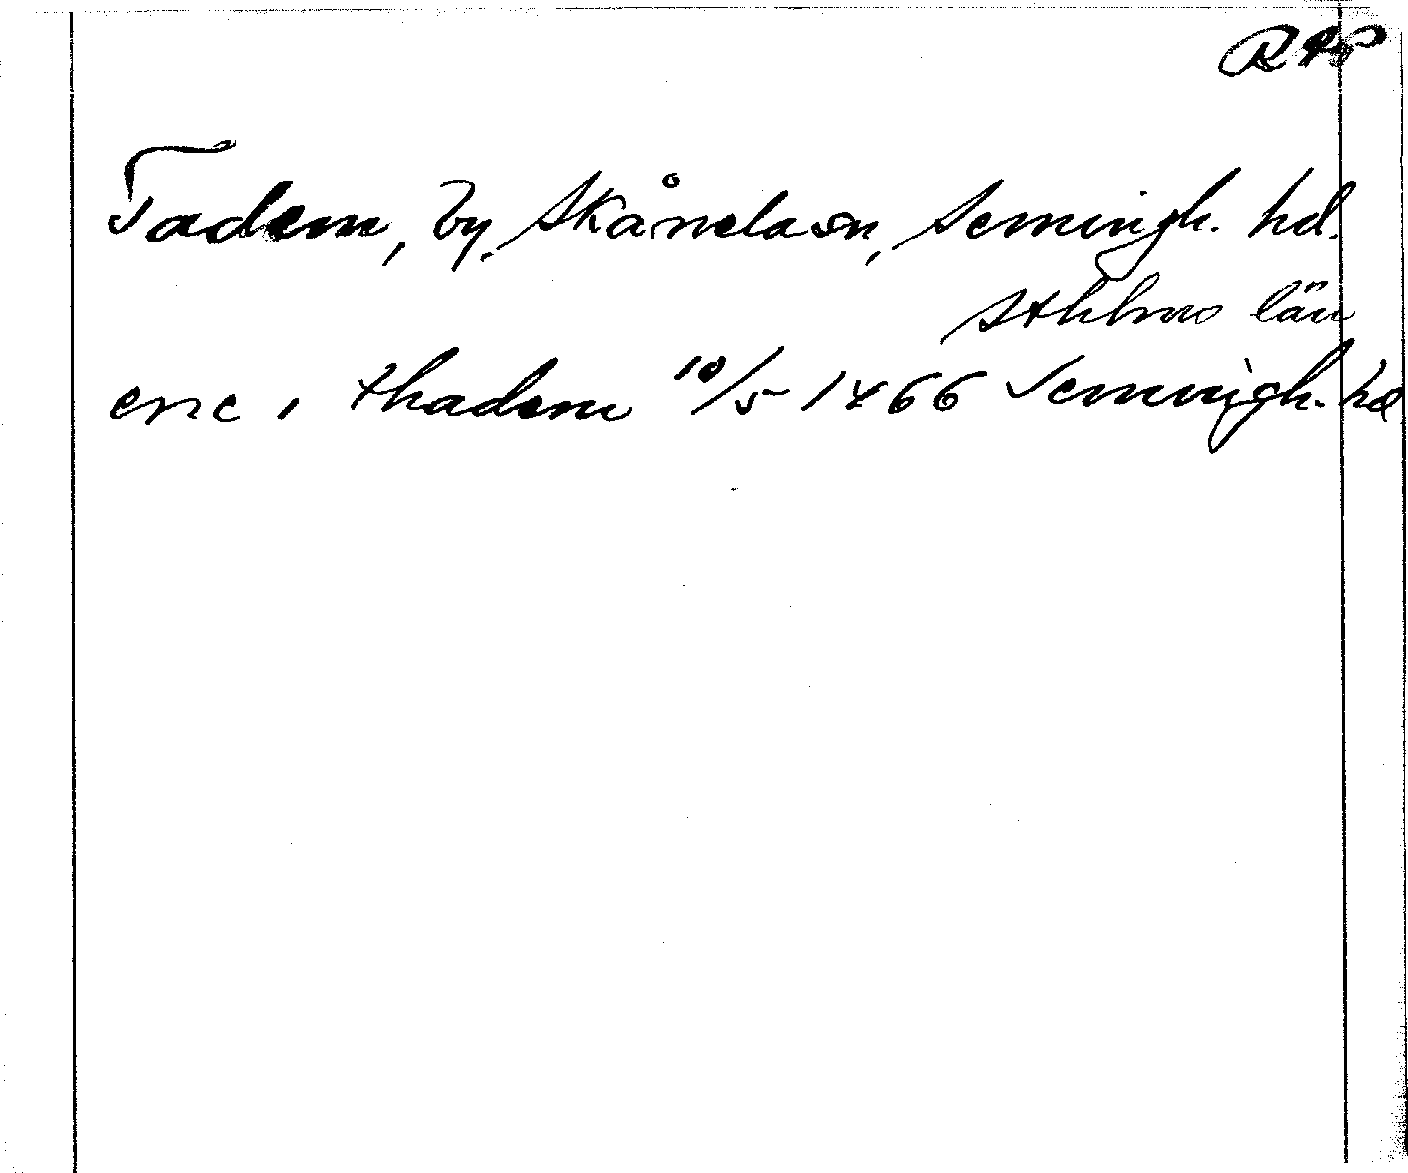 Tadem, by, Skånela sn, Semingh. hd.
Sthlms län
eric i thadem 10/5 1466 Semingh. hd